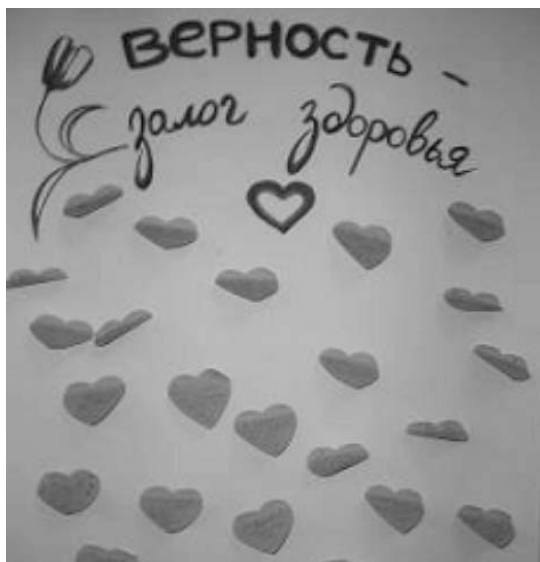 Верность -
залог здоровья